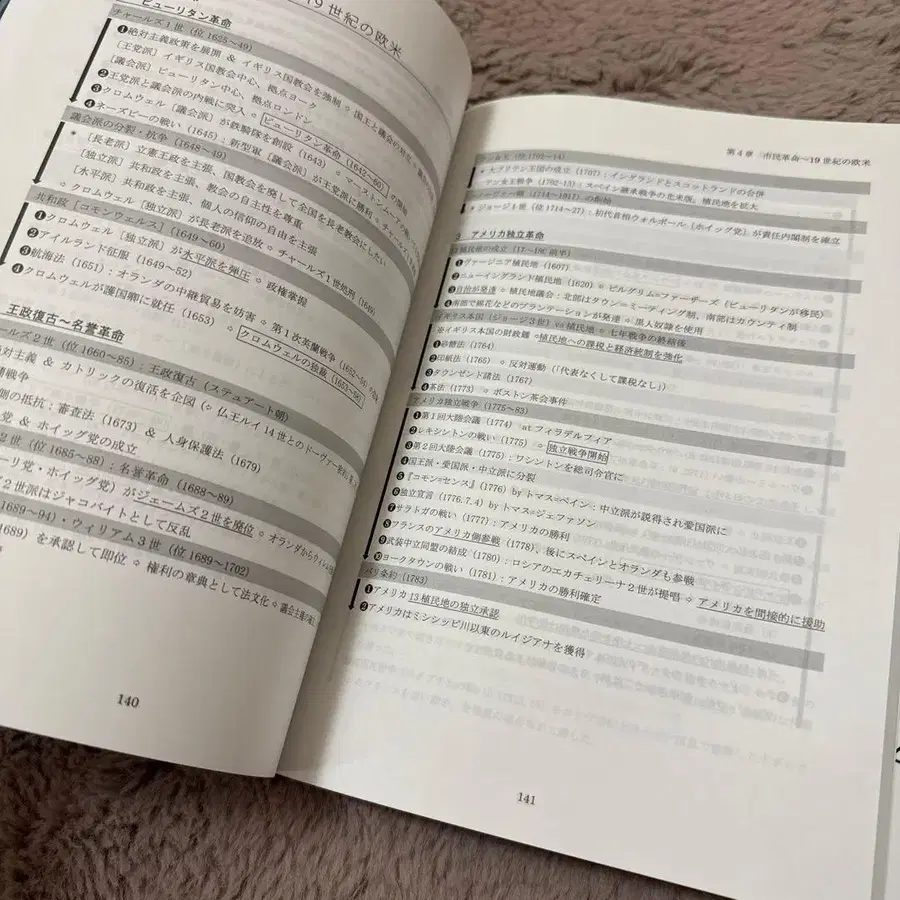 19世紀の欧米
ピューリタン革命
チャールズ1世（位1625～49）
❶絶対主義政策を展開 & イギリス国教会を強制 ⇨ 国王と議会の対立
[王党派] イギリス国教会中心、拠点ヨーク
[議会派] ピューリタン中心、拠点ロンドン
❷王党派と議会派の内戦に突入 ⇨ ピューリタン革命（1642～60）
❸クロムウェル［議会派］が鉄騎隊を創設（1643）
❹ネーズビーの戦い（1645）：新型軍［議会派］が王党派に勝利
議会派の分裂・抗争（1648～49）
［長老派］立憲王政を主張、国教会を廃して全国を長老教会にしたい
［独立派］共和政を主張、教会の自主性を尊重
［水平派］共和政を主張、個人の信仰の自由を主張
⇨ クロムウェル［独立派］が長老派を追放 ⇨ チャールズ1世処刑（1649）
共和政［コモンウェルス］（1649～60）
❶クロムウェル［独立派］が水平派を弾圧 ⇨ 政権掌握
❷アイルランド征服（1649～52）
❸航海法（1651）：オランダの中継貿易を妨害 ⇨ 第1次英蘭戦争（1652～54）
❹クロムウェルが護国卿に就任（1653） ⇨ クロムウェルの独裁（1653～58）
王政復古～名誉革命
ールズ2世（位1660～85）：王政復古（ステュアート朝）
対主義 & カトリックの復活を企図（⇨ 仏王ルイ14世とのドーヴァー密約
側の抵抗：審査法（1673） & 人身保護法（1679）
党 & ホイッグ党の成立
2世（位1685～88）：名誉革命（1688～89）
ーリ党・ホイッグ党）がジェームズ2世を廃位 ⇨ オランダから
2世派はジャコバイトとして反乱
1689～94）・ウィリアム3世（位1689～1702）
1689）を承認して即位 ⇨ 権利の章典として法文化 ⇨ 議会主権
140
第4章 市民革命～19世紀の欧米
（位1702～14）
大ブリテン王国の成立（1707）：イングランドとスコットランドの合併
アン女王戦争（1702-13）：スペイン継承戦争の北米版。植民地を拡大
ハノーヴァー朝（1714～1917）の創始
ジョージ1世（位1714～27）：初代首相ウォルポール（ホイッグ党）が責任内閣制を確立
3 アメリカ独立革命
植民地の成立（17～18C前半）
❶ヴァージニア植民地（1607）
❷ニューイングランド植民地（1620） ⇨ ピルグリム=ファーザーズ（ピューリタンが移民）
❸自治が発達 ⇨ 植民地議会：北部はタウン=ミーティング制、南部はカウンティ制
❹南部で綿花などのプランテーションが発達 ⇨ 黒人奴隷を使用
イギリス本国（ジョージ3世）vs 植民地 ⇨ 七年戦争の最終後
※イギリス本国の財政難 ⇨ 植民地への課税と経済統制を強化
❶砂糖法（1764）
❷印紙法（1765） ⇨ 反対運動（「代表なくして課税なし」）
❸タウンゼント諸法（1767）
❹茶法（1773） ⇨ ボストン茶会事件
アメリカ独立戦争（1775～83）
❶第1回大陸会議（1774） at フィラデルフィア
❷レキシントンの戦い（1775） ⇨ 独立戦争開始
❸第2回大陸会議（1775）：ワシントンを総司令官に
❹国王派・愛国派・中立派に分裂
❺『コモン=センス』（1776）by トマス=ペイン：中立派が説得され愛国派に
❻独立宣言（1776.7.4）by トマス=ジェファソン
❼サラトガの戦い（1777）：アメリカの勝利
❽フランスのアメリカ側参戦（1778）、後にスペインとオランダも参戦
❾武装中立同盟の結成（1780）：ロシアのエカチェリーナ2世が提唱 ⇨ アメリカを間接的に援助
❿ヨークタウンの戦い（1781）：アメリカの勝利確定
パリ条約（1783）
❶アメリカ13植民地の独立承認
❷アメリカはミシシッピ川以東のルイジアナを獲得
141